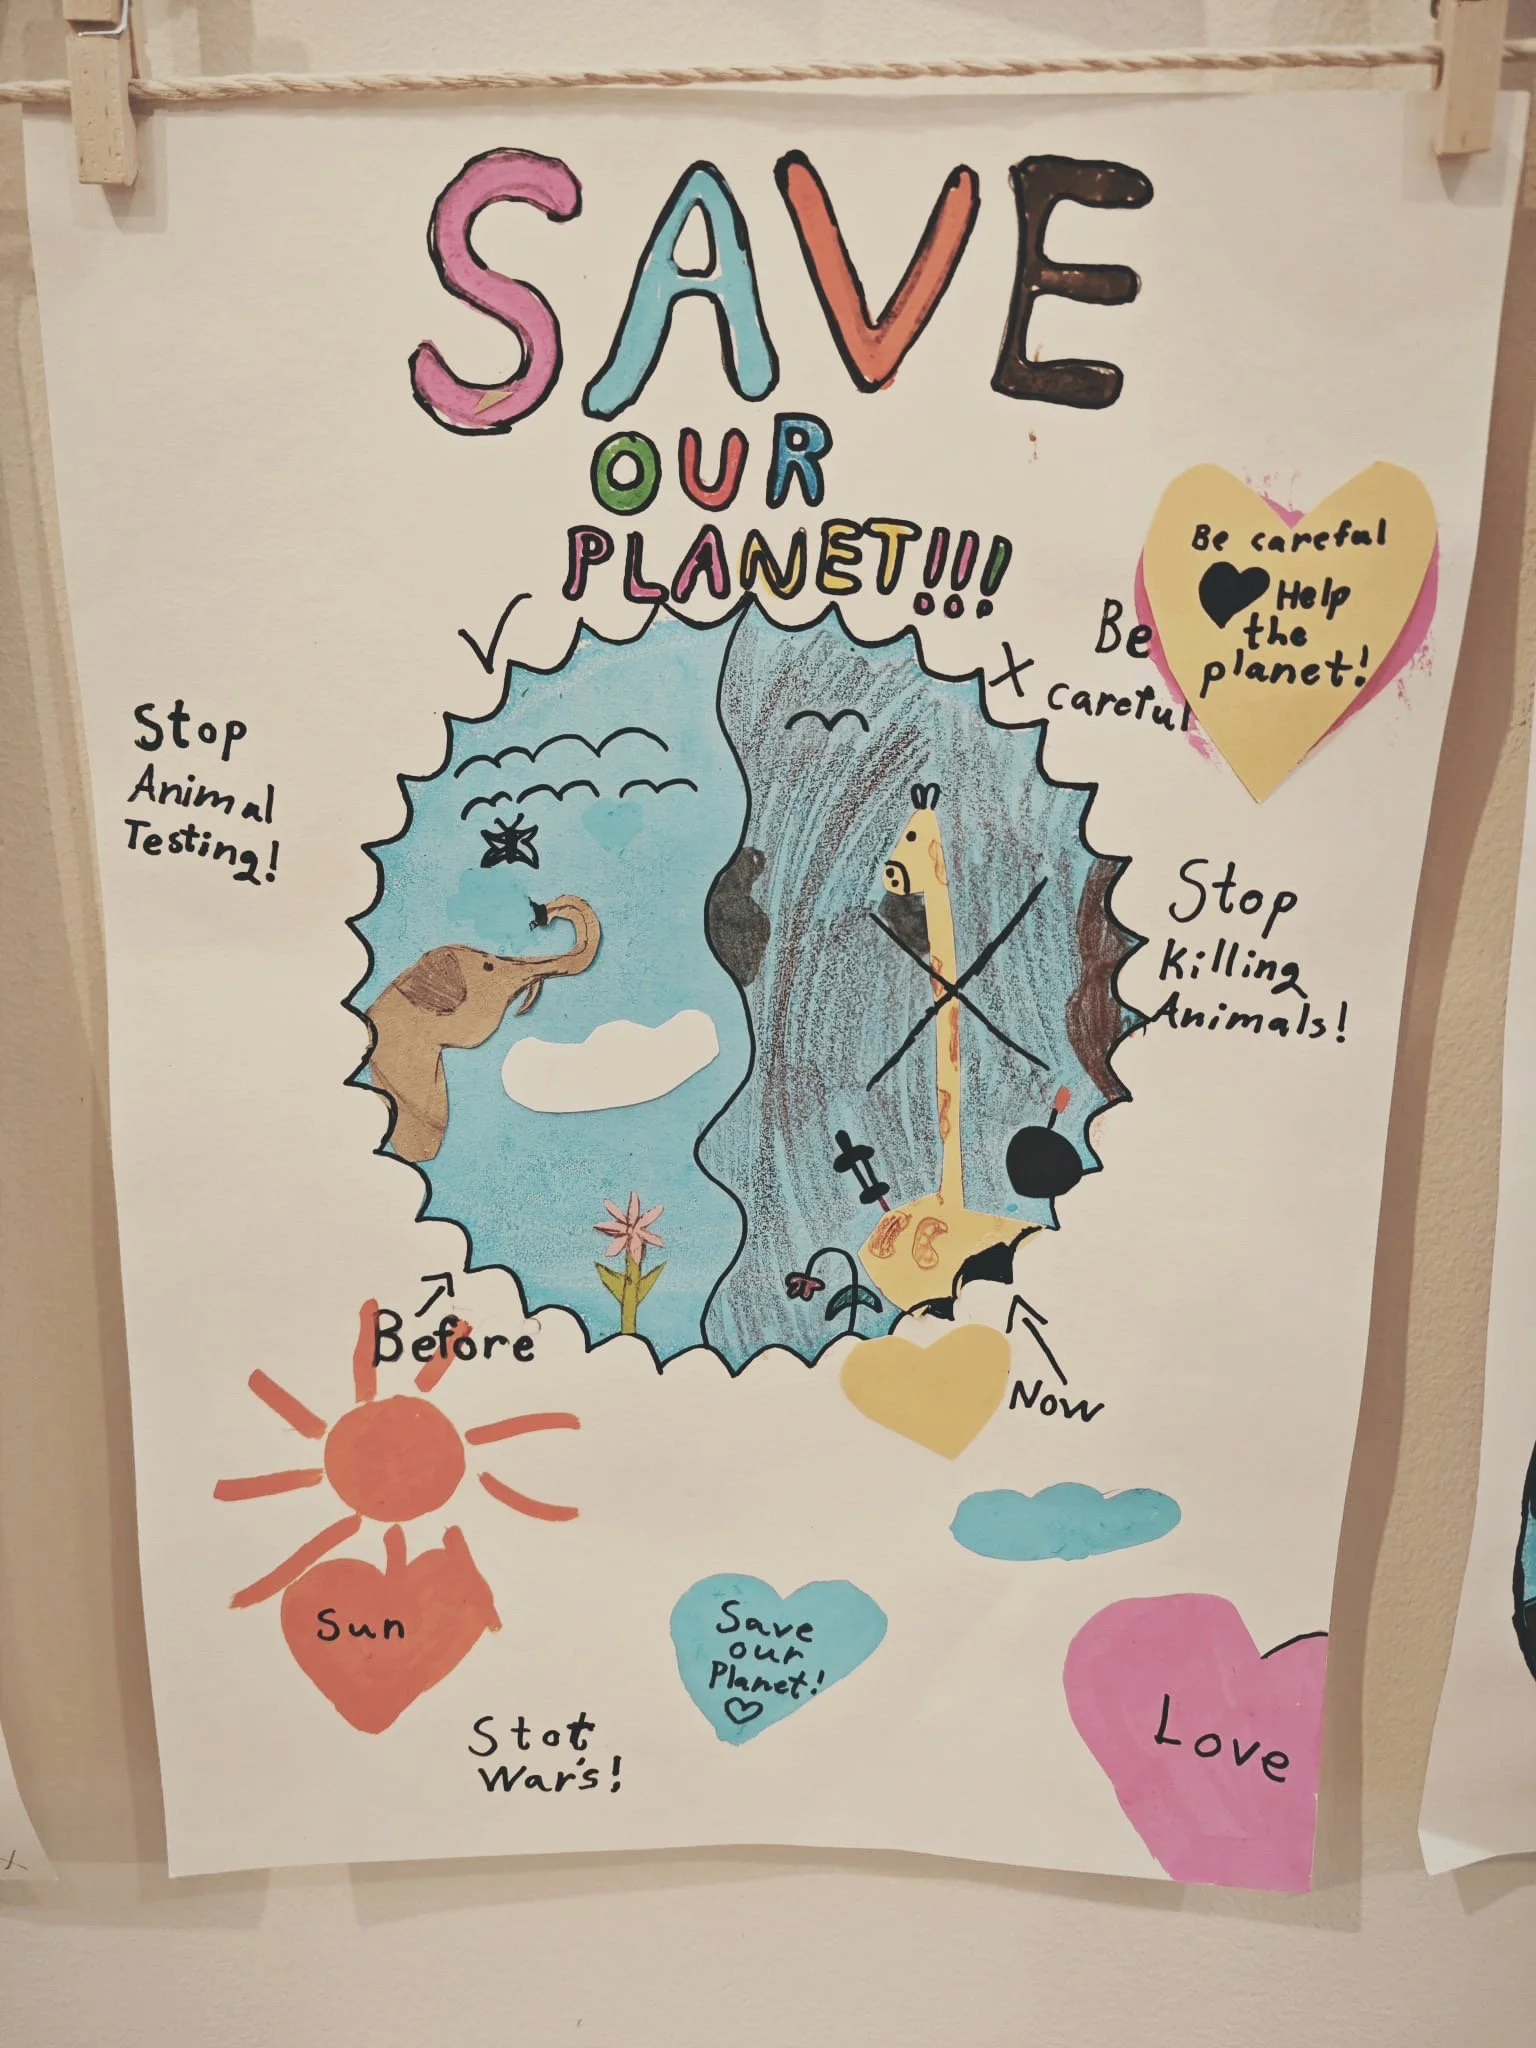 SAVE
OUR
PLANET!!!
Be careful
Help
the
planet!
Be
careful
Stop
Animal
Testing!
Stop
Killing
Animals!
Before
Now
Sun
Save
our
Planet!
Stot
War's!
Love